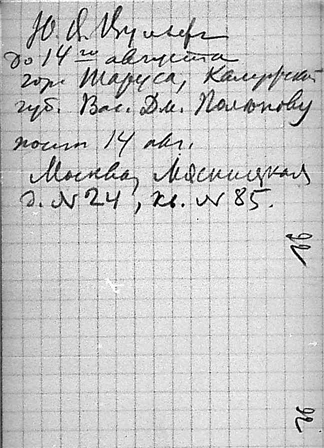 Ю. Я.
до 14го августа
гор. Таруса, Калужской
губ. Вас. Дм. Поленову
после 14 авг.
Москва, Мясницкая
д. № 24, кв. № 85.
92
92